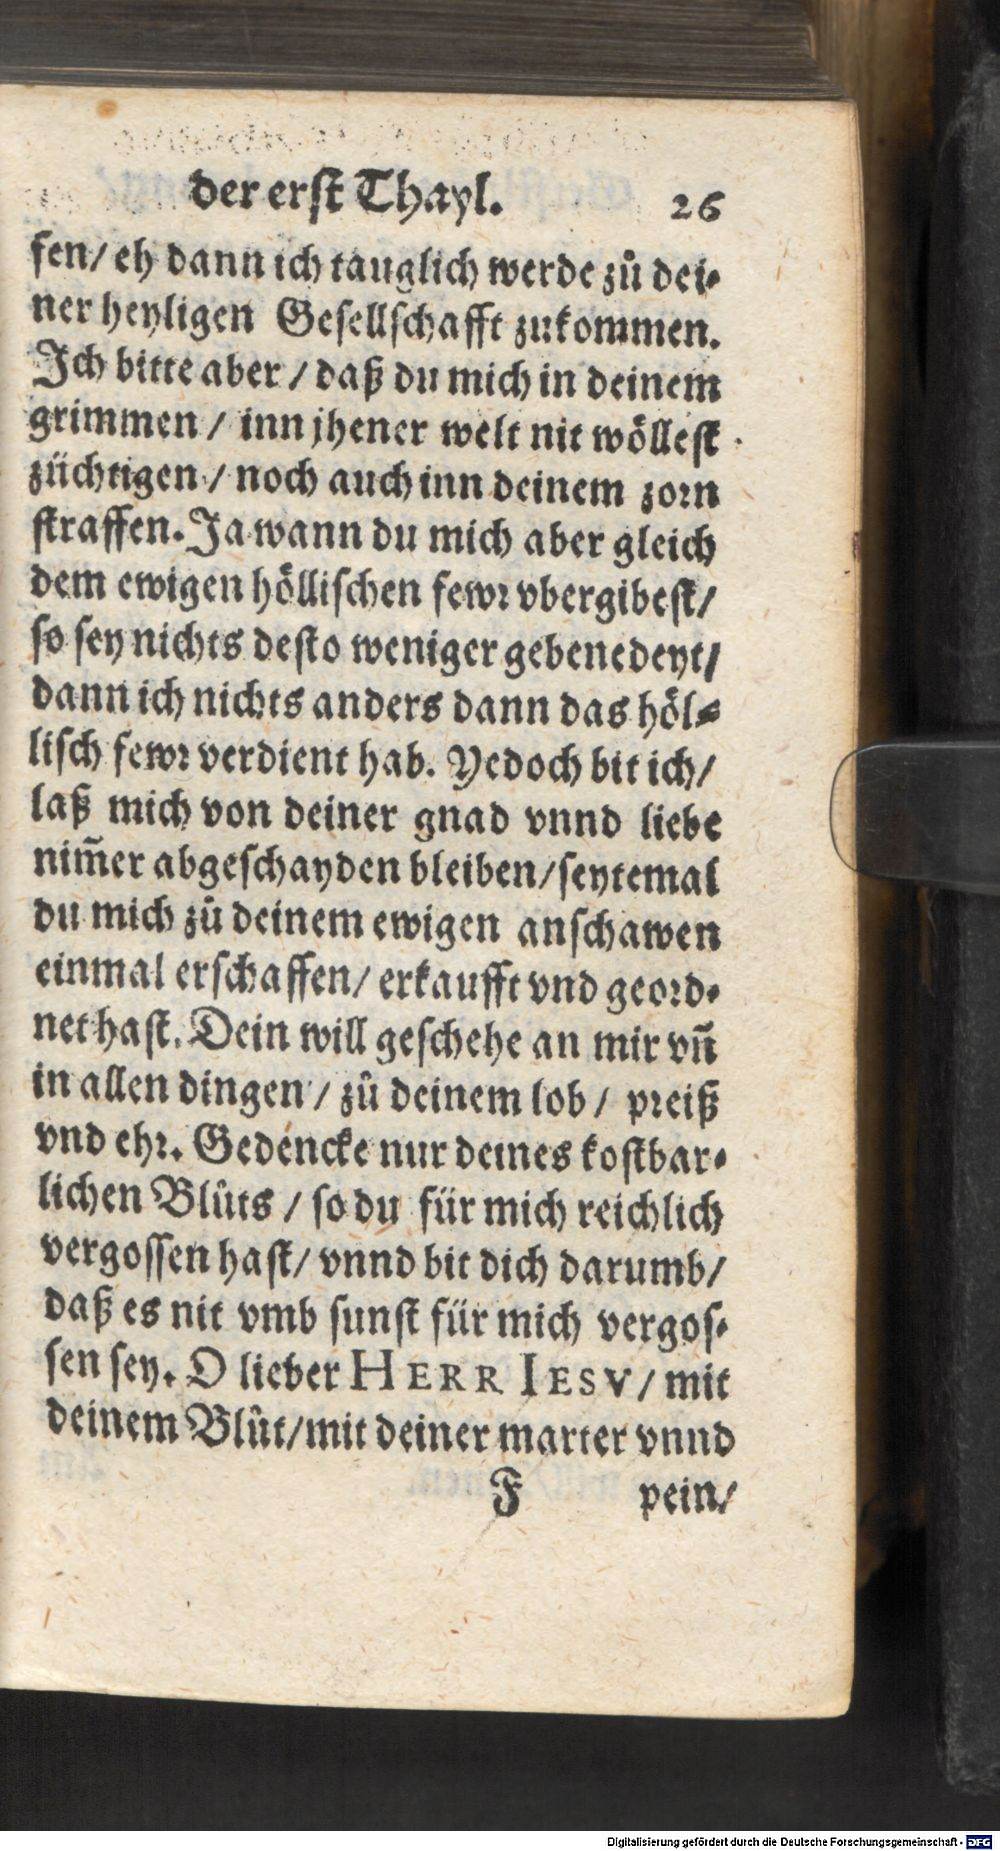 der erst Thayl. 26
fen/ eh dann ich tauglich werde zů dei⸗
ner heyligen Gesellschafft zukommen.
Ich bitte aber / daß du mich in deinem
grimmen / inn jhener welt nit wöllest
züchtigen / noch auch inn deinem zorn
straffen. Ja wann du mich aber gleich
dem ewigen höllischen fewr vbergibest/
so sey nichts desto weniger gebenedeyt/
dann ich nichts anders dann das höl⸗
lisch fewr verdient hab. Yedoch bit ich/
laß mich von deiner gnad vnnd liebe
nim̃er abgeschayden bleiben/seytemal
du mich zů deinem ewigen anschawen
einmal erschaffen/ erkaufft vnd geord⸗
net hast. Dein will geschehe an mir vñ
in allen dingen / zů deinem lob / preiß
vnd ehr. Gedencke nur deines kostbar⸗
lichen Blůts / so du für mich reichlich
vergossen hast/ vnnd bit dich darumb/
daß es nit vmb sunst für mich vergos⸗
sen sey. O lieber HERR IESV/ mit
deinem Blůt/mit deiner marter vnnd
F pein/
Digitalisierung gefördert durch die Deutsche Forschungsgemeinschaft - DFG